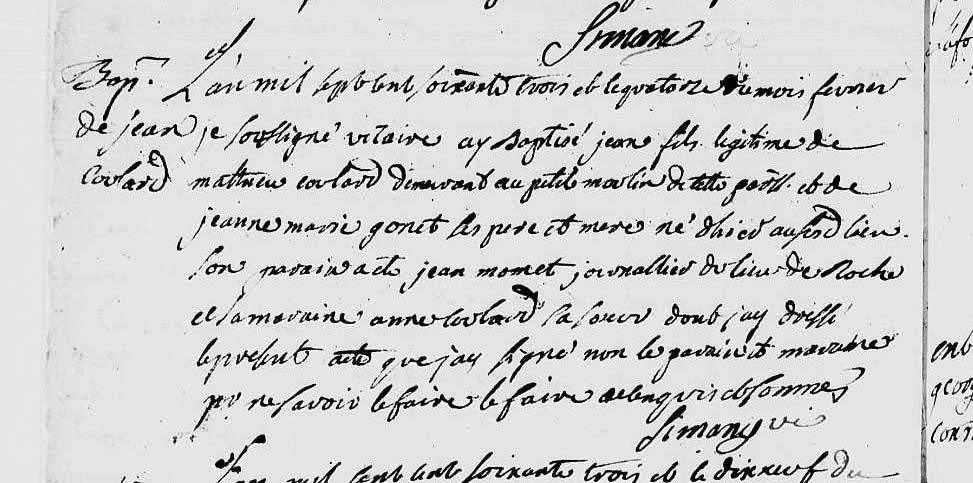 Simane
Bap.
de jean
Coulard
L'an mil sept cent soixante trois et le quatorze du mois fevrier
je soussigné vicaire ay Baptisé jean fils legitime de
mathieu coulard demeurant au petit moulin de cette parss. et de
jeanne marie gonet ses pere et mere né d'hier aususd lieu.
son parain a été jean momet journallier du lieu de Roche
et sa maraine anne coulard sa soeur dont j'ay dressé
le present acte que j'ay signé non le parain et maraine
pr ne savoir le faire le faire de ce enquis et sommes
Simane vic
L'an mil sept cent soixante trois et le dixneuf du